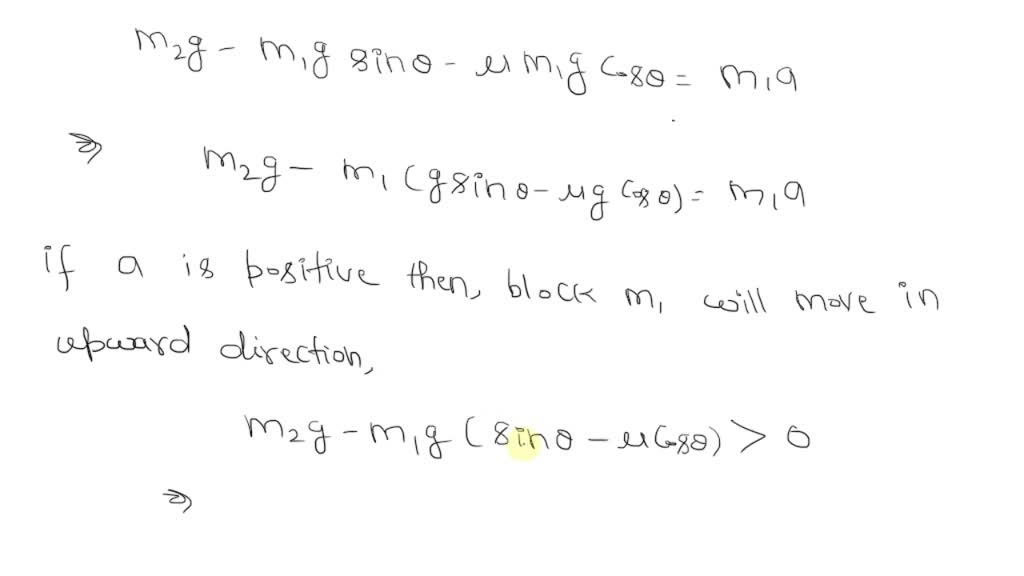 m₂g - m₁g sinθ - μ m₁g cosθ = m₁a
⇒ m₂g - m₁(gsinθ - μg cosθ) = m₁a
if a is positive then, block m₁ will move in
upward direction,
m₂g - m₁g (sinθ - μcosθ) > 0
⇒